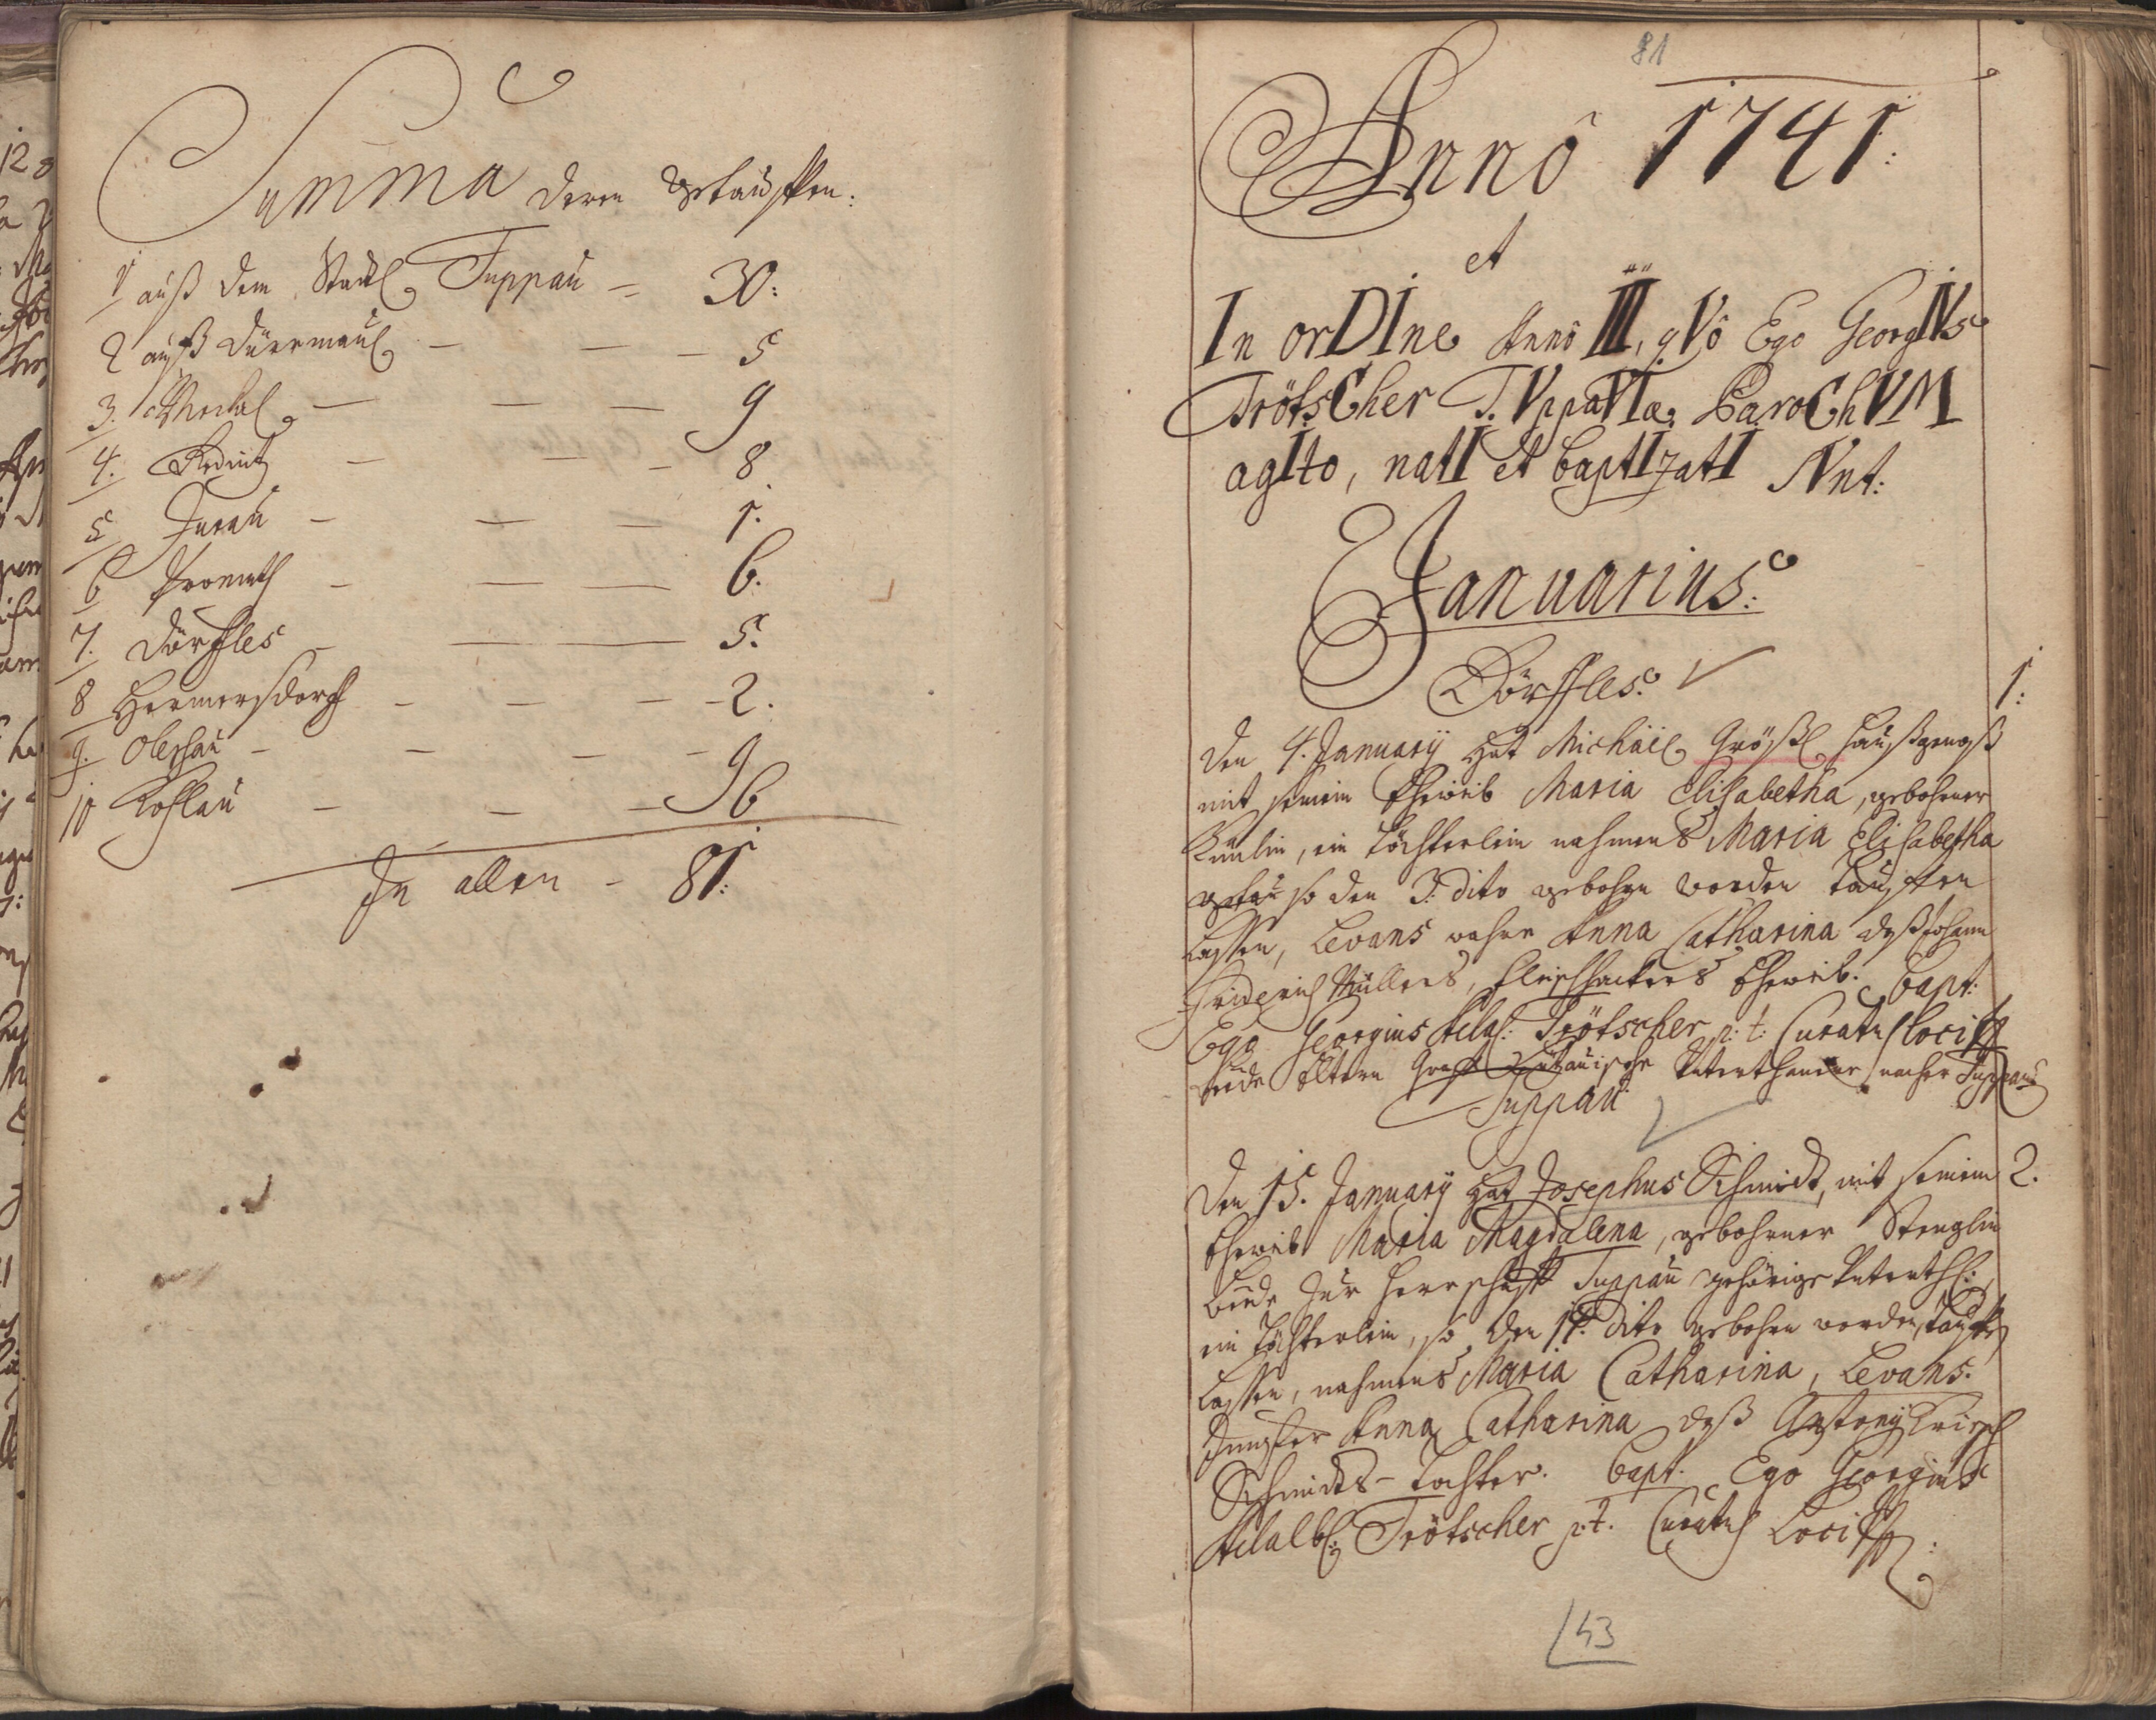 Summa deren getaufften:
1 auß dem Stadtl Duppau = 30:
2 auß Dürrmaul — — — 5
3. Mechol — — — 9
4. Redniz — — — 8
5 Jurau — — — 1.
6 Promuth — — — 6.
7. Dörffles — — — 5.
8 Hermersdorff — — — 2.
9. Oleschau — — — 9
10 Koslau — — — 6
In allen — 81:
81
Annô 1741:
et
In orDIne Annô III, qVô Ego GeorgIVs
TrötsCher T.VppaVIæ ParoChVM
agIto, natI et baptIzatI sVnt:
Januarius:
Dörffles.
1:
Den 4. Januarÿ hat Michäel Größl Haußgenoß
mit seinem Eheweib Maria Elisabetha, gebohrner
ein Töchterlein nahmens Maria Elisabetha
so den 3. dito gebohrn worden tauffen
lassen, Levans wahre Anna Catharina deß Johann
Friderich Müllers, Fleischhackers Eheweib. Bapt:
Ego Georgius Adal: Trötscher p: t: Curatus loci
beede Eltern Unterthaner nacher Duppau
Duppau
Den 15. Januarÿ hat Josephus Schmidt, mit seinem 2.
Eheweib Maria Magdalena, gebohrner Stenglin
beede zur Herrschafft Duppau gehörige Unterth:
ein Töchterlein, so den dito gebohrn worden, tauffen
lassen, nahmens Maria Catharina, Levans.
Jungfer Anna Catharina deß Antonÿ
Schmidts-Tochter. Bapt. Ego Georgius
Adalb: Trötscher p. t. Curatus Loci
43